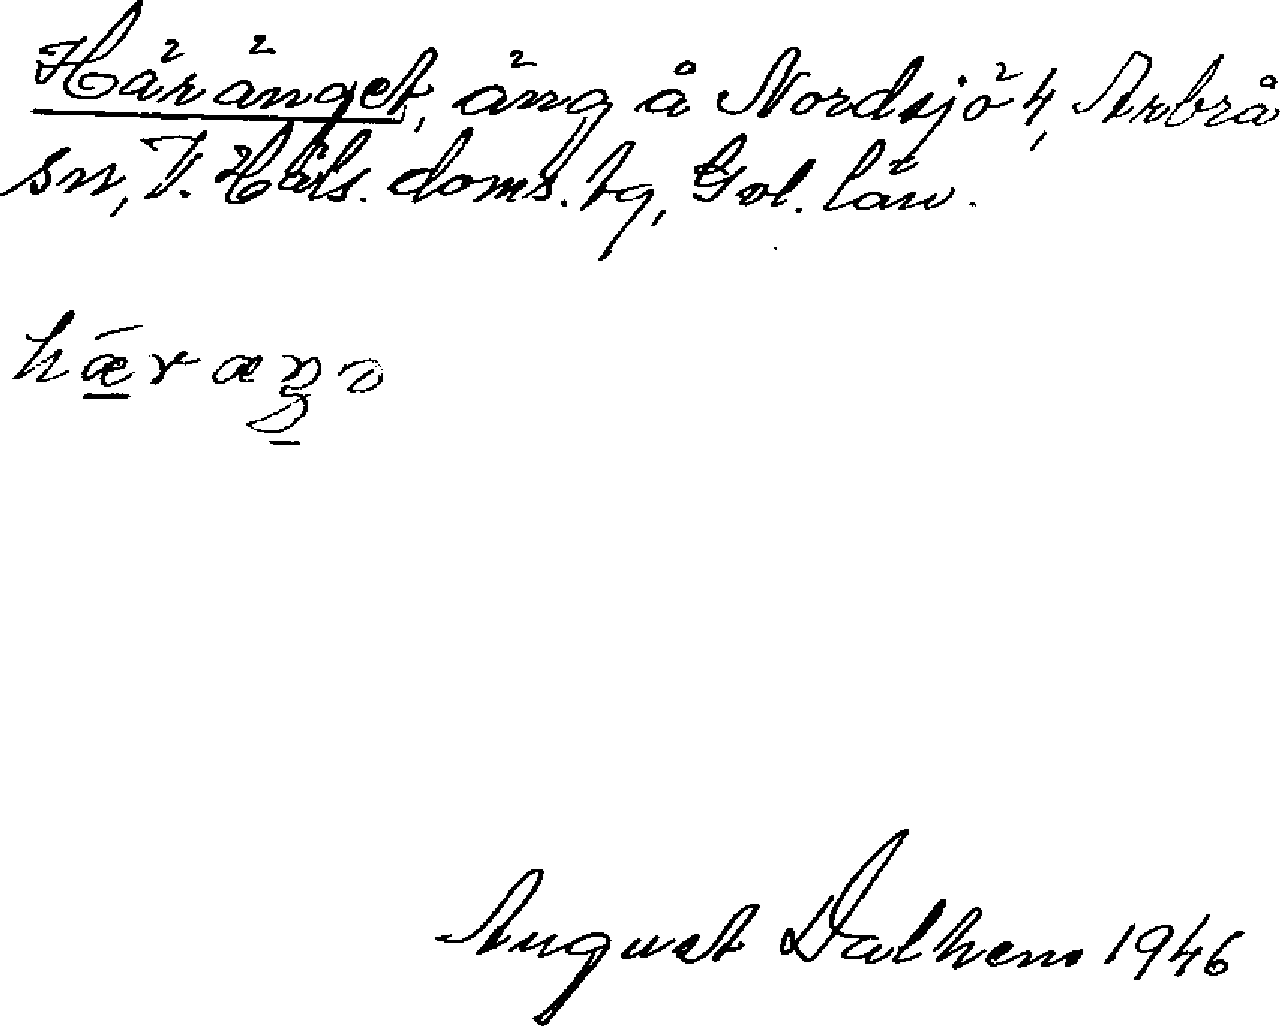 Häränget, äng å Nordsjö 4, Arbrå
sn, V. Häls. doms. tg, Gvl. län.
hǣraŋə
August Dalhem 1946